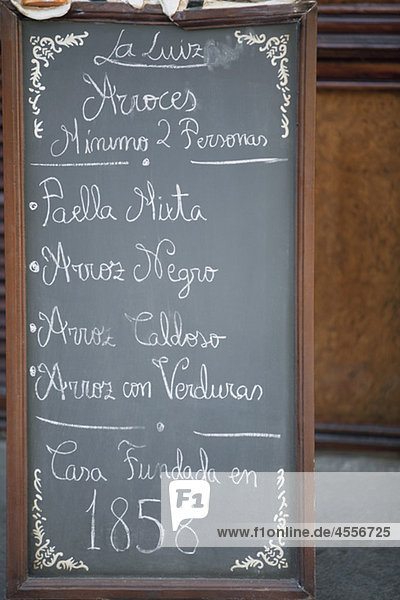 La Luiz
Arroces
Mínimo 2 Personas
Paella Mixta
Arroz Negro
Arroz Caldoso
Arroz con Verduras
Casa Fundada en
1858
F1
age fotostock
4556725